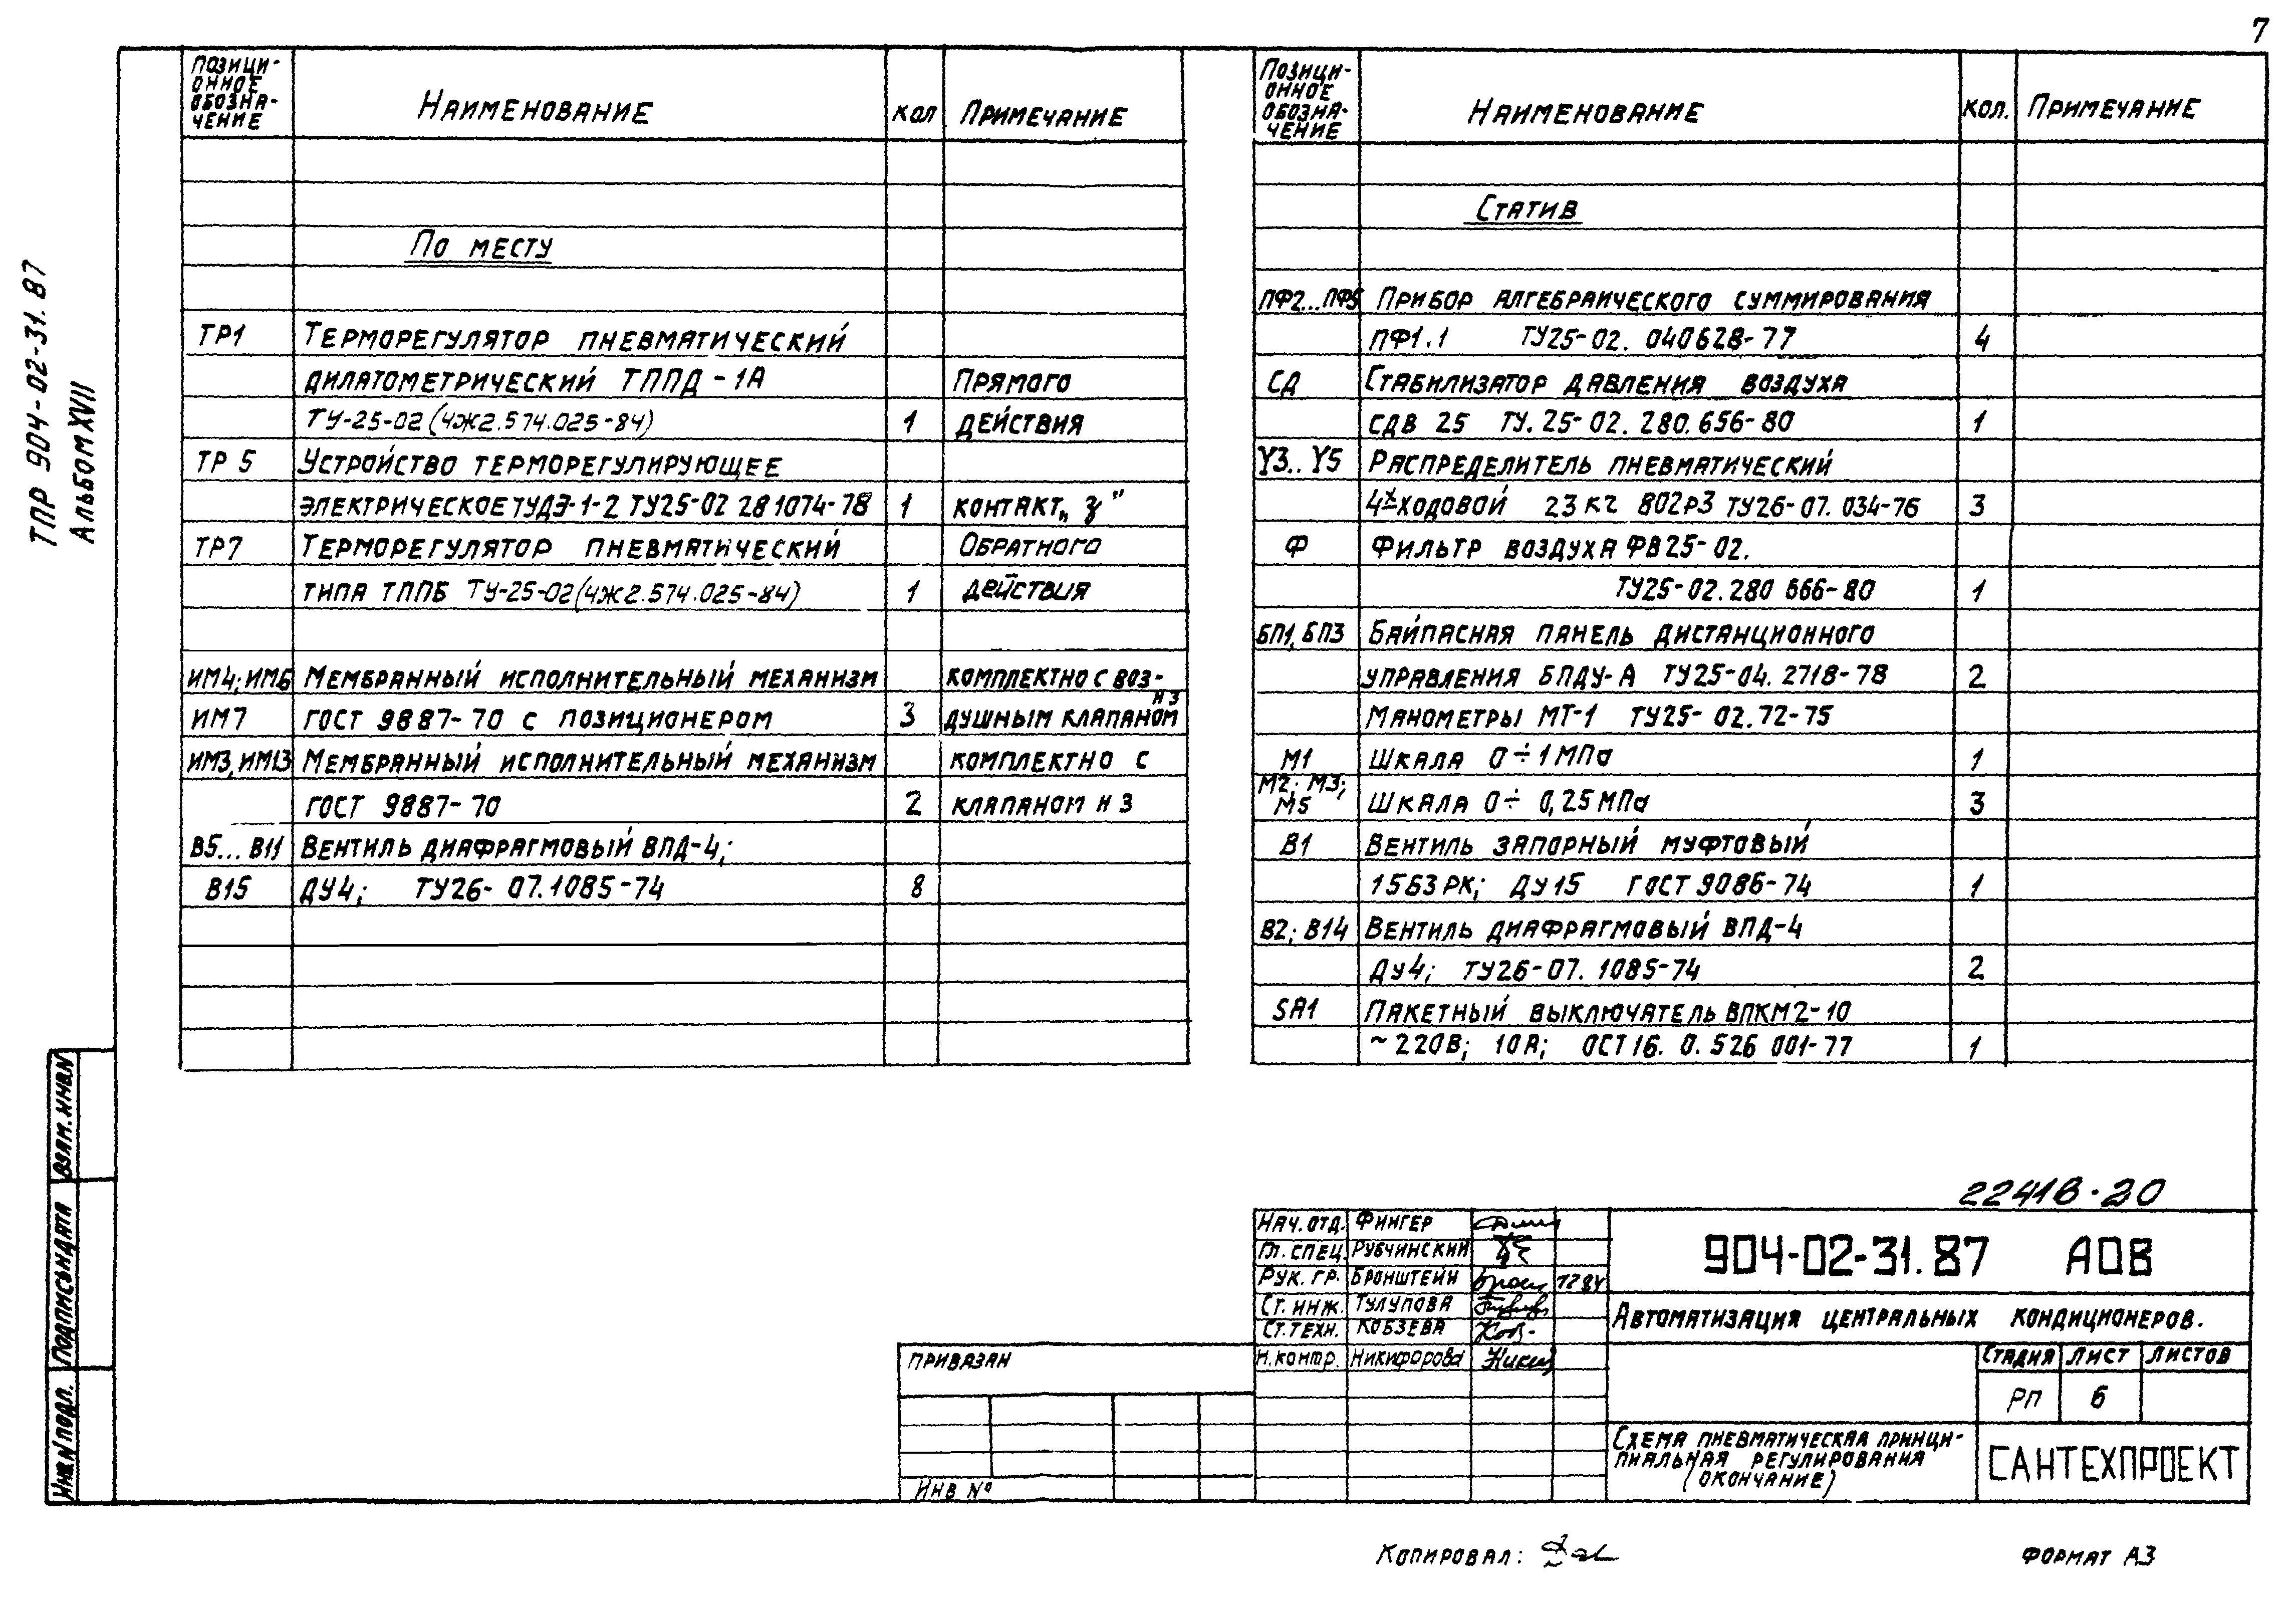 7
ТПР 904-02-31.87
Альбом XVII
Позици-
онное
обозна-
чение
Наименование
Кол
Примечание
По месту
ТР1 Терморегулятор пневматический
дилатометрический ТППД-1А Прямого
ТУ-25-02(4Ж2.574.025-84) 1 действия
ТР 5 Устройство терморегулирующее
электрическое ТУДЭ-1-2 ТУ25-02 281074-78 1 контакт „З"
ТР7 Терморегулятор пневматический Обратного
типа ТППБ ТУ-25-02(4Ж2.574.025-84) 1 действия
ИМ4; ИМ6 Мембранный исполнительный механизм комплектно с воз-
ИМ7 ГОСТ 9887-70 с позиционером 3 душным клапаном НЗ
ИМ3, ИМ13 Мембранный исполнительный механизм комплектно с
ГОСТ 9887-70 2 клапаном НЗ
В5...В11 Вентиль диафрагмовый ВПД-4;
В15 ДУ4; ТУ26-07.1085-74 8
Позици-
онное
обозна-
чение
Наименование
Кол.
Примечание
Статив
ПФ2...ПФ5 Прибор алгебраического суммирования
ПФ1.1 ТУ25-02.040628-77 4
СД Стабилизатор давления воздуха
СДВ 25 ТУ.25-02.280.656-80 1
Y3..Y5 Распределитель пневматический
4х ходовой 23 кг 802р3 ТУ26-07.034-76 3
Ф Фильтр воздуха ФВ25-02.
ТУ25-02.280 666-80 1
БП1, БП3 Байпасная панель дистанционного
управления БПДУ-А ТУ25-04.2718-78 2
Манометры МТ-1 ТУ25-02.72-75
М1 Шкала 0÷1МПа 1
М2; М3;
М5 Шкала 0÷ 0,25МПа 3
В1 Вентиль запорный муфтовый
15Б3РК; ДУ15 ГОСТ 9086-74 1
В2; В14 Вентиль диафрагмовый ВПД-4
ДУ4; ТУ26-07.1085-74 2
SA1 Пакетный выключатель ВПКМ2-10
~220В; 10А; ОСТ16.0.526 001-77 1
Взам.инв.N
Подпись и дата
Инв.N подл.
22416-20
Нач. отд. Фингер
Гл. спец. Рубчинский
Рук. гр. Бронштейн 1284
Ст. инж. Тулупова
Ст. техн. Кобзева
Н. контр. Никифорова
904-02-31.87 АОВ
Автоматизация центральных кондиционеров.
Стадия Лист Листов
РП 6
Схема пневматическая принци-
пиальная регулирования
(окончание)
САНТЕХПРОЕКТ
Привязан
Инв №
Копировал:
Формат А3